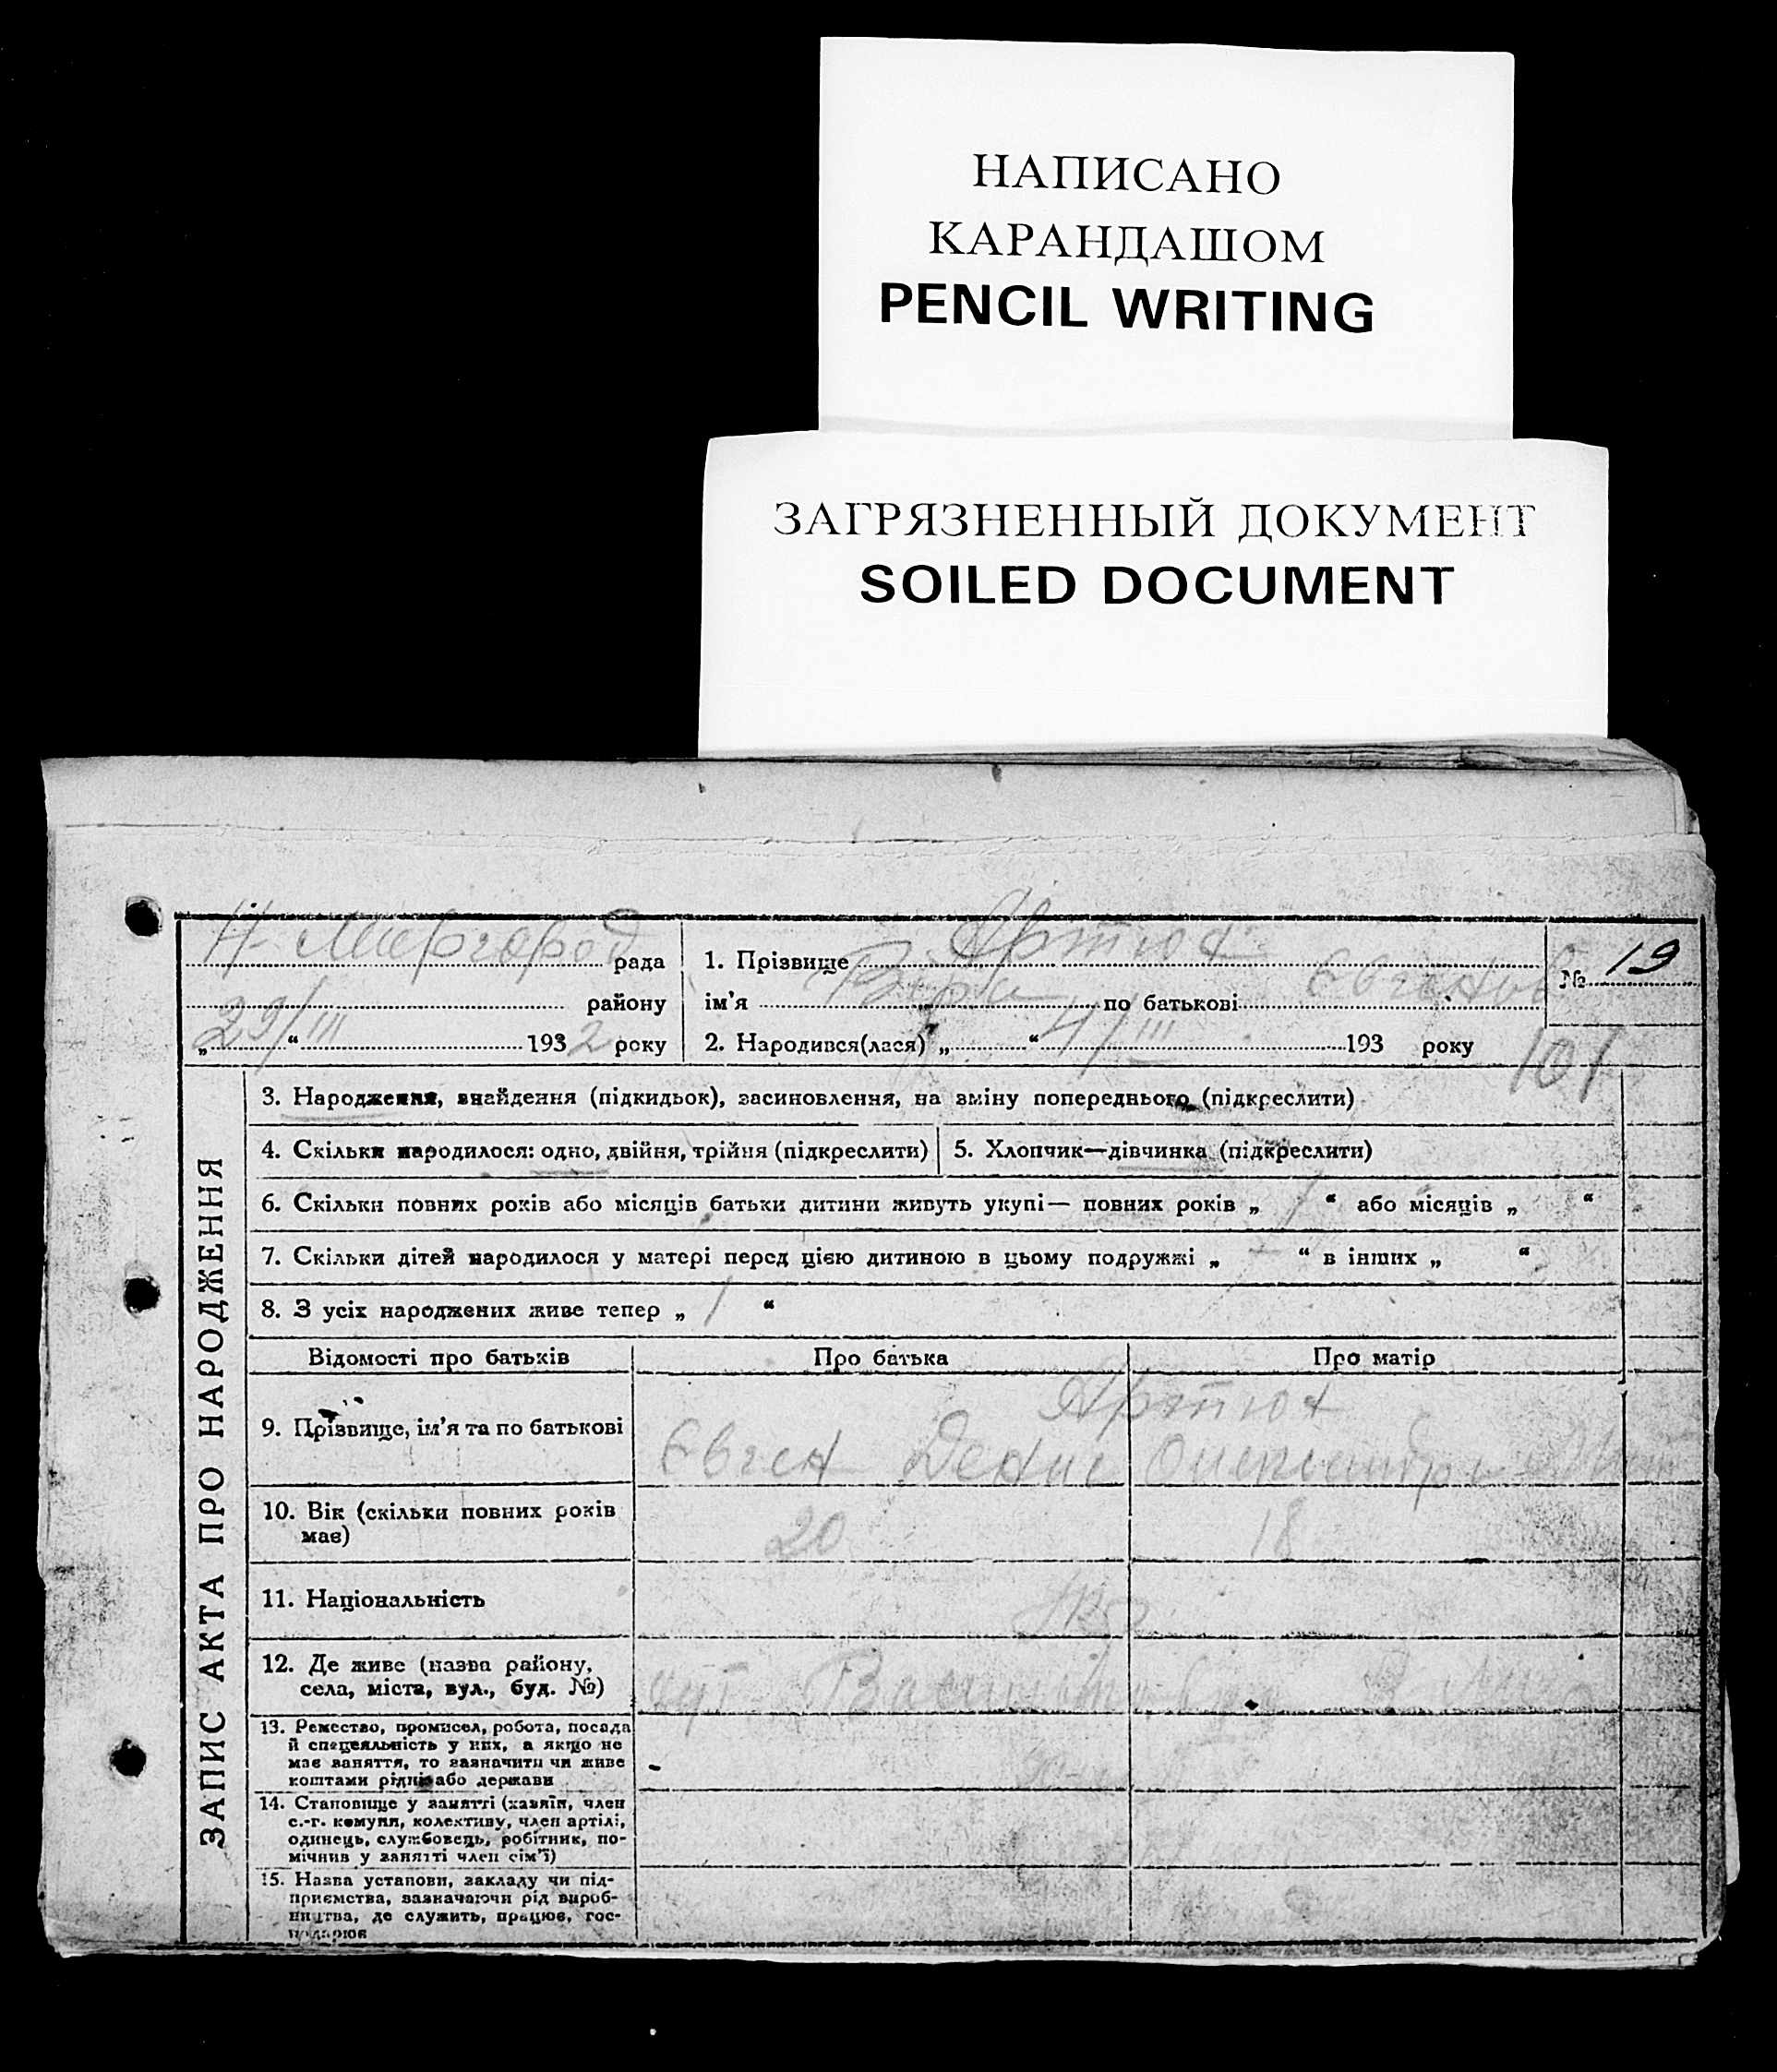 НАПИСАНО
КАРАНДАШОМ
PENCIL WRITING
ЗАГРЯЗНЕННЫЙ ДОКУМЕНТ
SOILED DOCUMENT
Н-Миргород рада
району
„29/III“ 1932 року
1. Прізвище Артюх
ім’я Віра по батькові Євгенов
2. Народився(лася) „ “ 4/III 193 року
№ 19
101
ЗАПИС АКТА ПРО НАРОДЖЕННЯ
3. Народження, знайдення (підкидьок), засиновлення, на зміну попереднього (підкреслити)
4. Скільки народилося: одно, двійня, трійня (підкреслити)
5. Хлопчик—дівчинка (підкреслити)
6. Скільки повних років або місяців батьки дитини живуть укупі— повних років „ 1 “ або місяців „ “
7. Скільки дітей народилося у матері перед цією дитиною в цьому подружжі „ — “ в інших „ “
8. З усіх народжених живе тепер „ 1 “
Відомості про батьків
Про батька
Про матір
9. Прізвище, ім’я та по батькові
Артюх
Євген Денис
10. Вік (скільки повних років має)
20
18
11. Національність
Укр
12. Де живе (назва району,
села, міста, вул., буд. №)
хут
13. Ремество, промисел, робота, посада
й спецеяльність у них, а якщо не
має заняття, то зазначити чи живе
коштами рідні або держави
14. Становище у занятті (хазяїн, член
с.-г. комуни, колективу, член артілі,
одинець, службовець, робітник, по-
мічник у занятті член сім’ї)
15. Назва установи, закладу чи під-
приємства, зазначаючи рід вироб-
ництва, де служить, працює, гос-
подарює